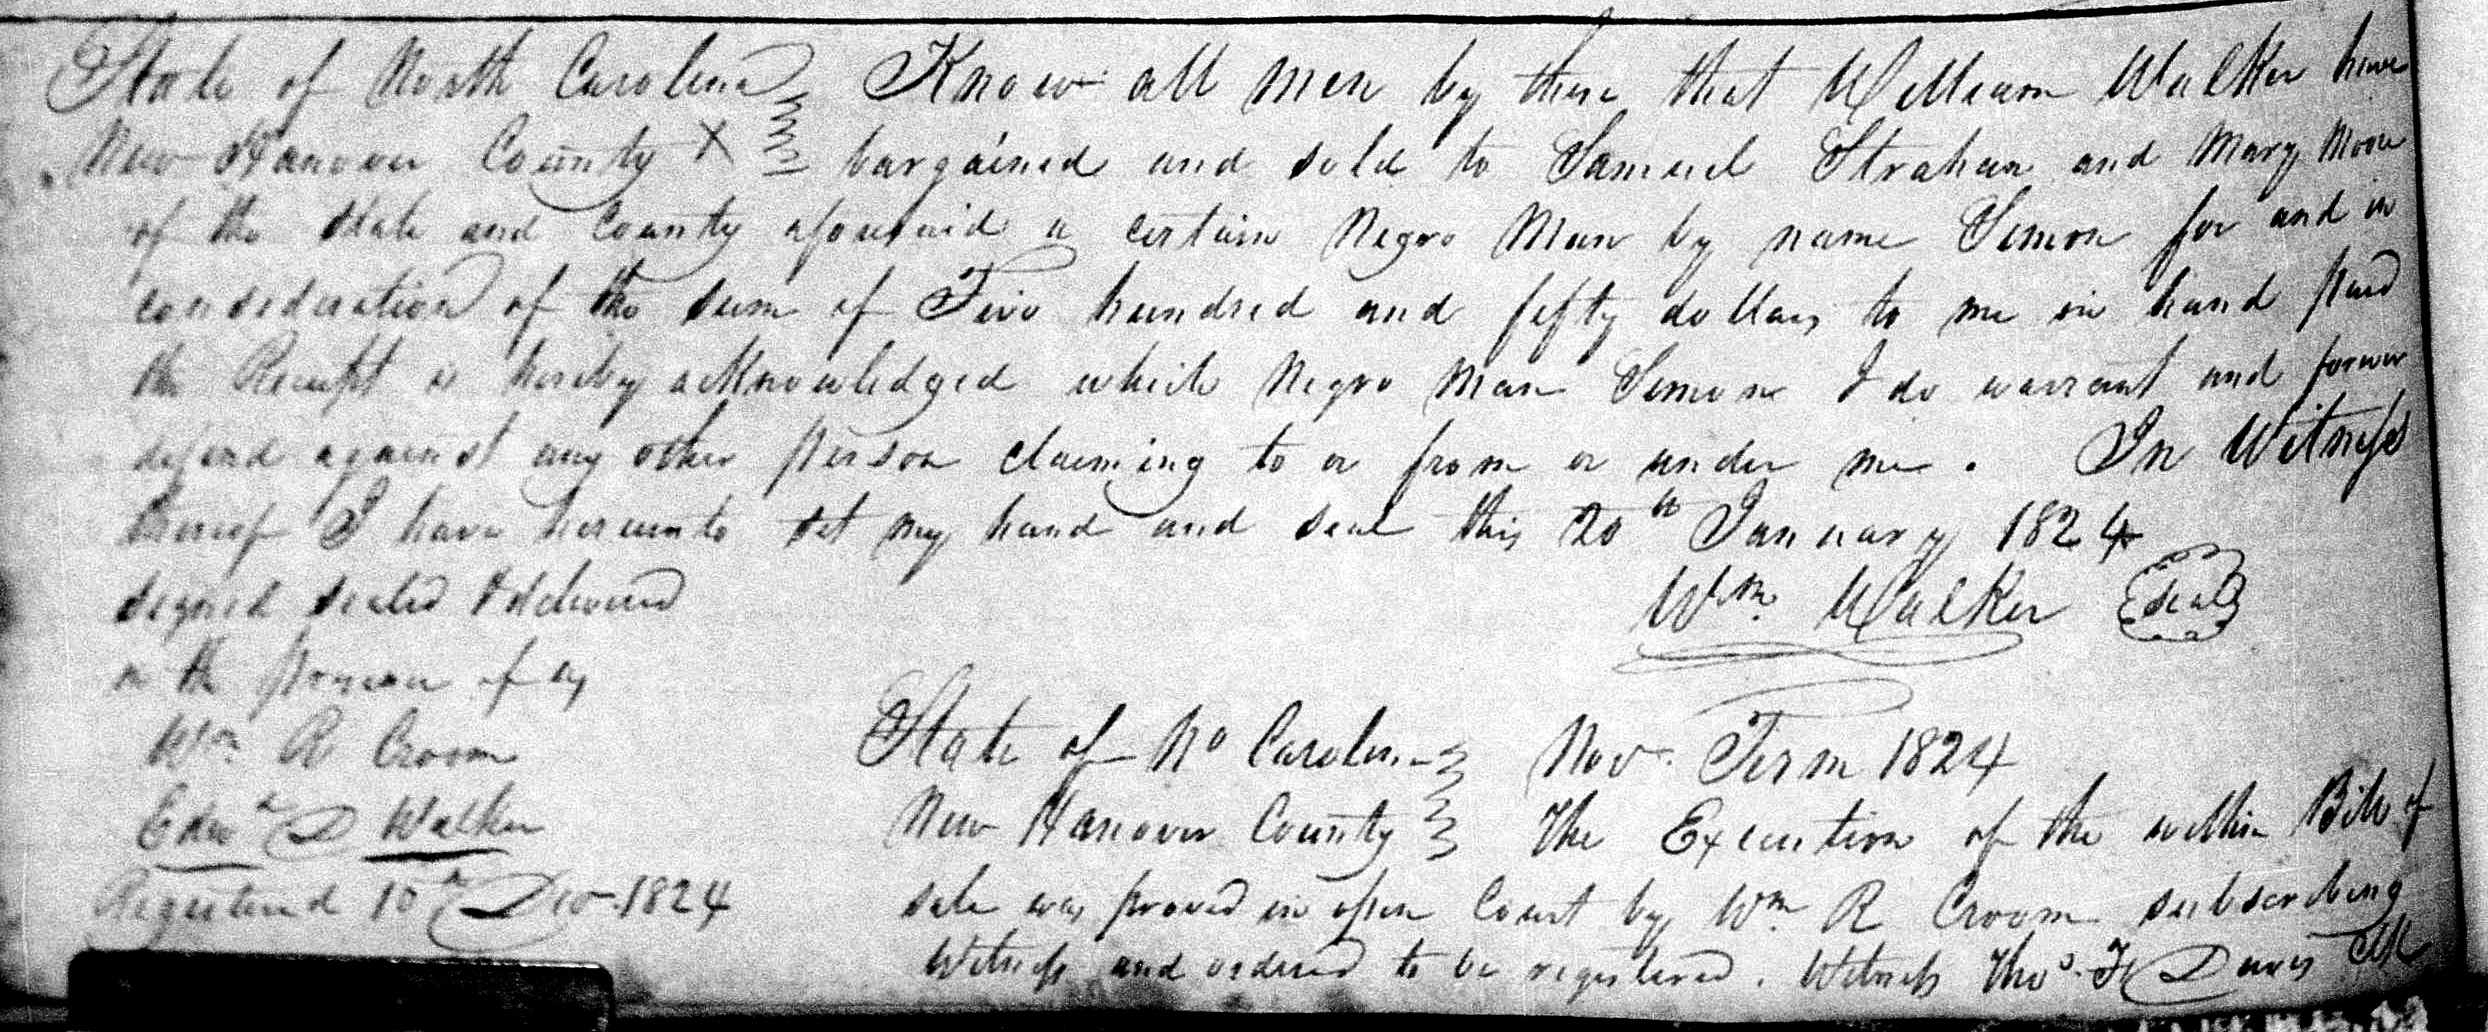 State of North Carolina Know all men by these that William Walker have
New Hanover County X bargained and sold to Samuel Strahan and Mary Moore
of the State and County aforesaid a certain Negro Man by name Simon for and in
consideration of the sum of Five hundred and fifty dollars to me in hand paid
the Receipt is hereby acknowledged which Negro Man Simon I do warrant and forever
defend against any other person claiming to or from or under me. In Witness
thereof I have hereunto set my hand and seal this 20th January 1824
signed sealed & delivered
Wm. Walker Seal
in the presence of by
Wm R Croom
Edwd D Walker
Registered 10th Dec. 1824
State of No Carolina Nov. Term 1824
New Hanover County The Execution of the within Bill of
sale was proved in open Court by Wm R Croom subscribing
Witness and ordered to be registered. Witness Thos. F Davis Clk